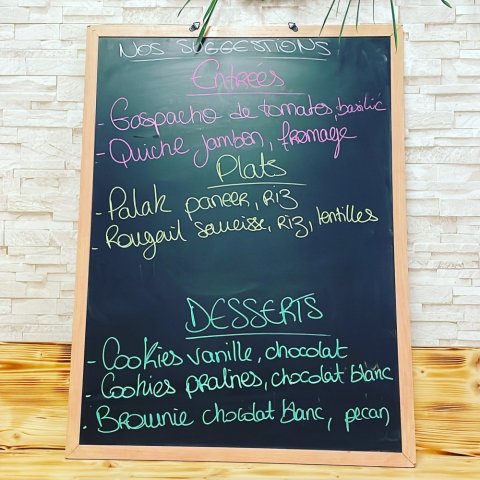 NOS SUGGESTIONS
Entrées
- Gaspacho de tomates, basilic
- Quiche jambon, fromage
Plats
- Palak paneer, Riz
- Rougail saucisse, Riz, lentilles
DESSERTS
- Cookies vanille, chocolat
- Cookies pralines, chocolat blanc
- Brownie chocolat blanc, pecan